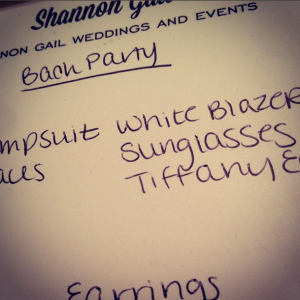 Shannon
NON GAIL WEDDINGS AND EVENTS
Bach Party
mpsuit White Blazer
aces Sunglasses
Tiffany E
Earrings